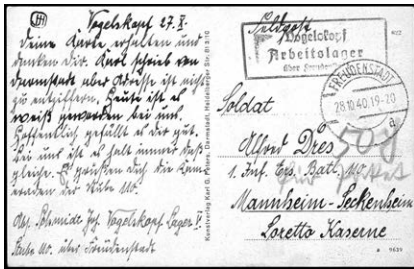 Vogelskopf 27.X.
Deine Karte erhalten und
danken dir. Karl schrieb von
Darmstadt aber Adresse ist nicht
zu entziffern. Heute ist es
weiß geworden bei uns.
Hoffentlich gefällt es dir gut.
Bei uns ist es halt immer das
gleiche. Es grüßen dich die Kam
eraden der Stube
Abs. Schmidt Vogelskopf Lager
Stube über Freudenstadt
Kunstverlag Karl G. Peters, Darmstadt, Heidelberger Str.
Feldpost
Vogelskopf
Arbeitslager
über Freudenstadt
FREUDENSTADT
28.10.40.19-20
a
Soldat
Alfred Dres
1. Inf. Ers. Batl. 110
Mannheim-Seckenheim
Loretto Kaserne